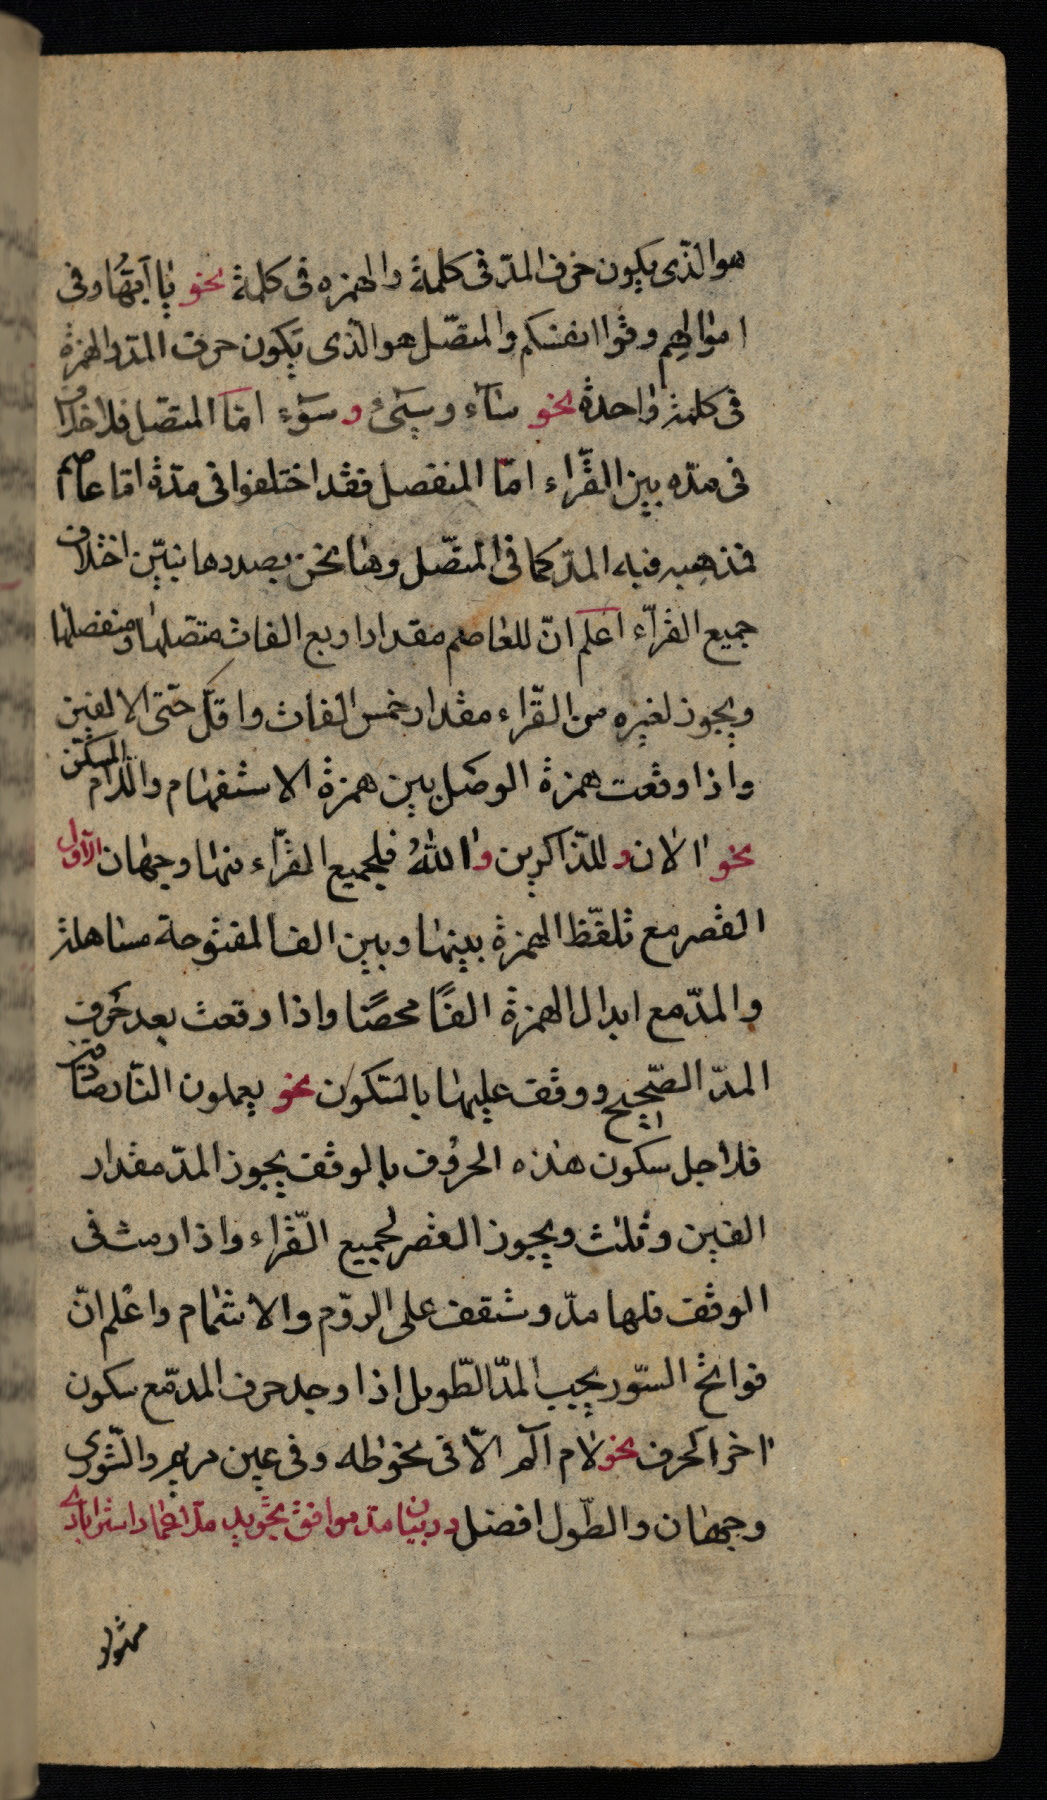 هو الّذى يكون حرف المدّ فى كلمة والهمزه فى كلمة نحو يا ايّهُا وفى
اموالهم وقوا انفسكم والمتصّل هو الّذى يكون حرف المدّ والهمزة
فى كلمة واحدة نحو سآء وسيٓئ و سوٓء امّا المتصّل فلا خلاف
فى مدّه بين القّراء امّا المنفصل فقد اختلفوا فى مدّة امّا عاصم
فمذهبه فيه المدّ كما فى المتصّل وهنا نحن بصددها نبيّن اختلاف
جميع القرّآء اعلم انّ للعاصم مقدار اربع الفات متصّلها ومنفصلها
ويجوز لغيره من القّراء مقدار خمس الفات واقلّ حتّى الالفين
واذا وقعت همزة الوصل بين همزة الاستفهام واللّام المسكّن
نحو الان و للذّاكرين و اللهُ فلجميع القرّآء منها وجهان الاوّل
القصر مع تلفّظ الهمزة بينها وبين الف المفتوحة مساهلة
والمدّ مع ابدال الهمزة الفًا محضًا واذا وقعت بعد حرف
المدّ الصّحيح ووقف عليها بالسّكون نحو يعملون النّار صادقين
فلاجل سكون هذه الحرُوف بالوقف يجوز المدّ مقدار
الفين وثلث ويجوز القصر لجميع القّراء واذا رمت فى
الوقف فلها مدّ وستقف على الرّوم والاشمام واعلم انّ
فواتح السّور يجب المدّ الطّويل اذا وجد حرف المدّ مع سكون
اخر الحرف نحو لام آلم الّا فى نحو طه وفى عين مريم والشّورى
وجهان والطّول افضل در بيان مدّ موافق تجويد ملّا عماد استرابادى